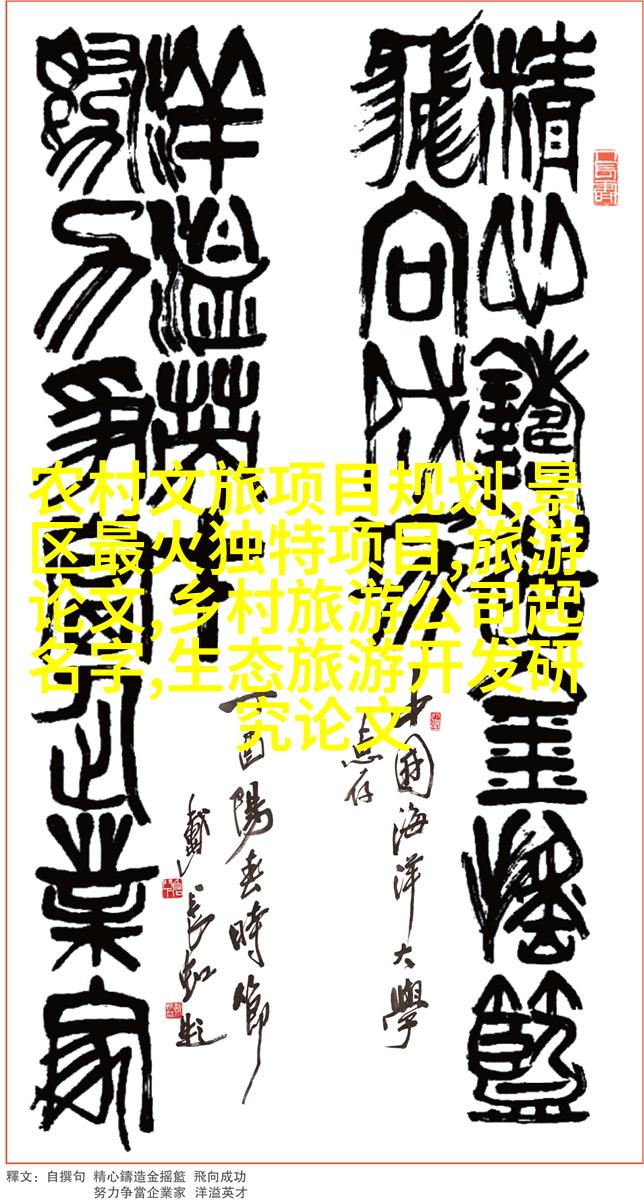 精心鑄造金搖籃
飛向成功
中國海洋大學
惠存
努力爭當企業家
洋溢英才
丁酉陽春時節
戴長虹題
农村文旅项目规划,景
区最火独特项目,旅游
论文,乡村旅游公司起
名字,生态旅游开发研
究论文
釋文：自撰句 精心鑄造金摇籃 飛向成功
努力争當企業家 洋溢英才